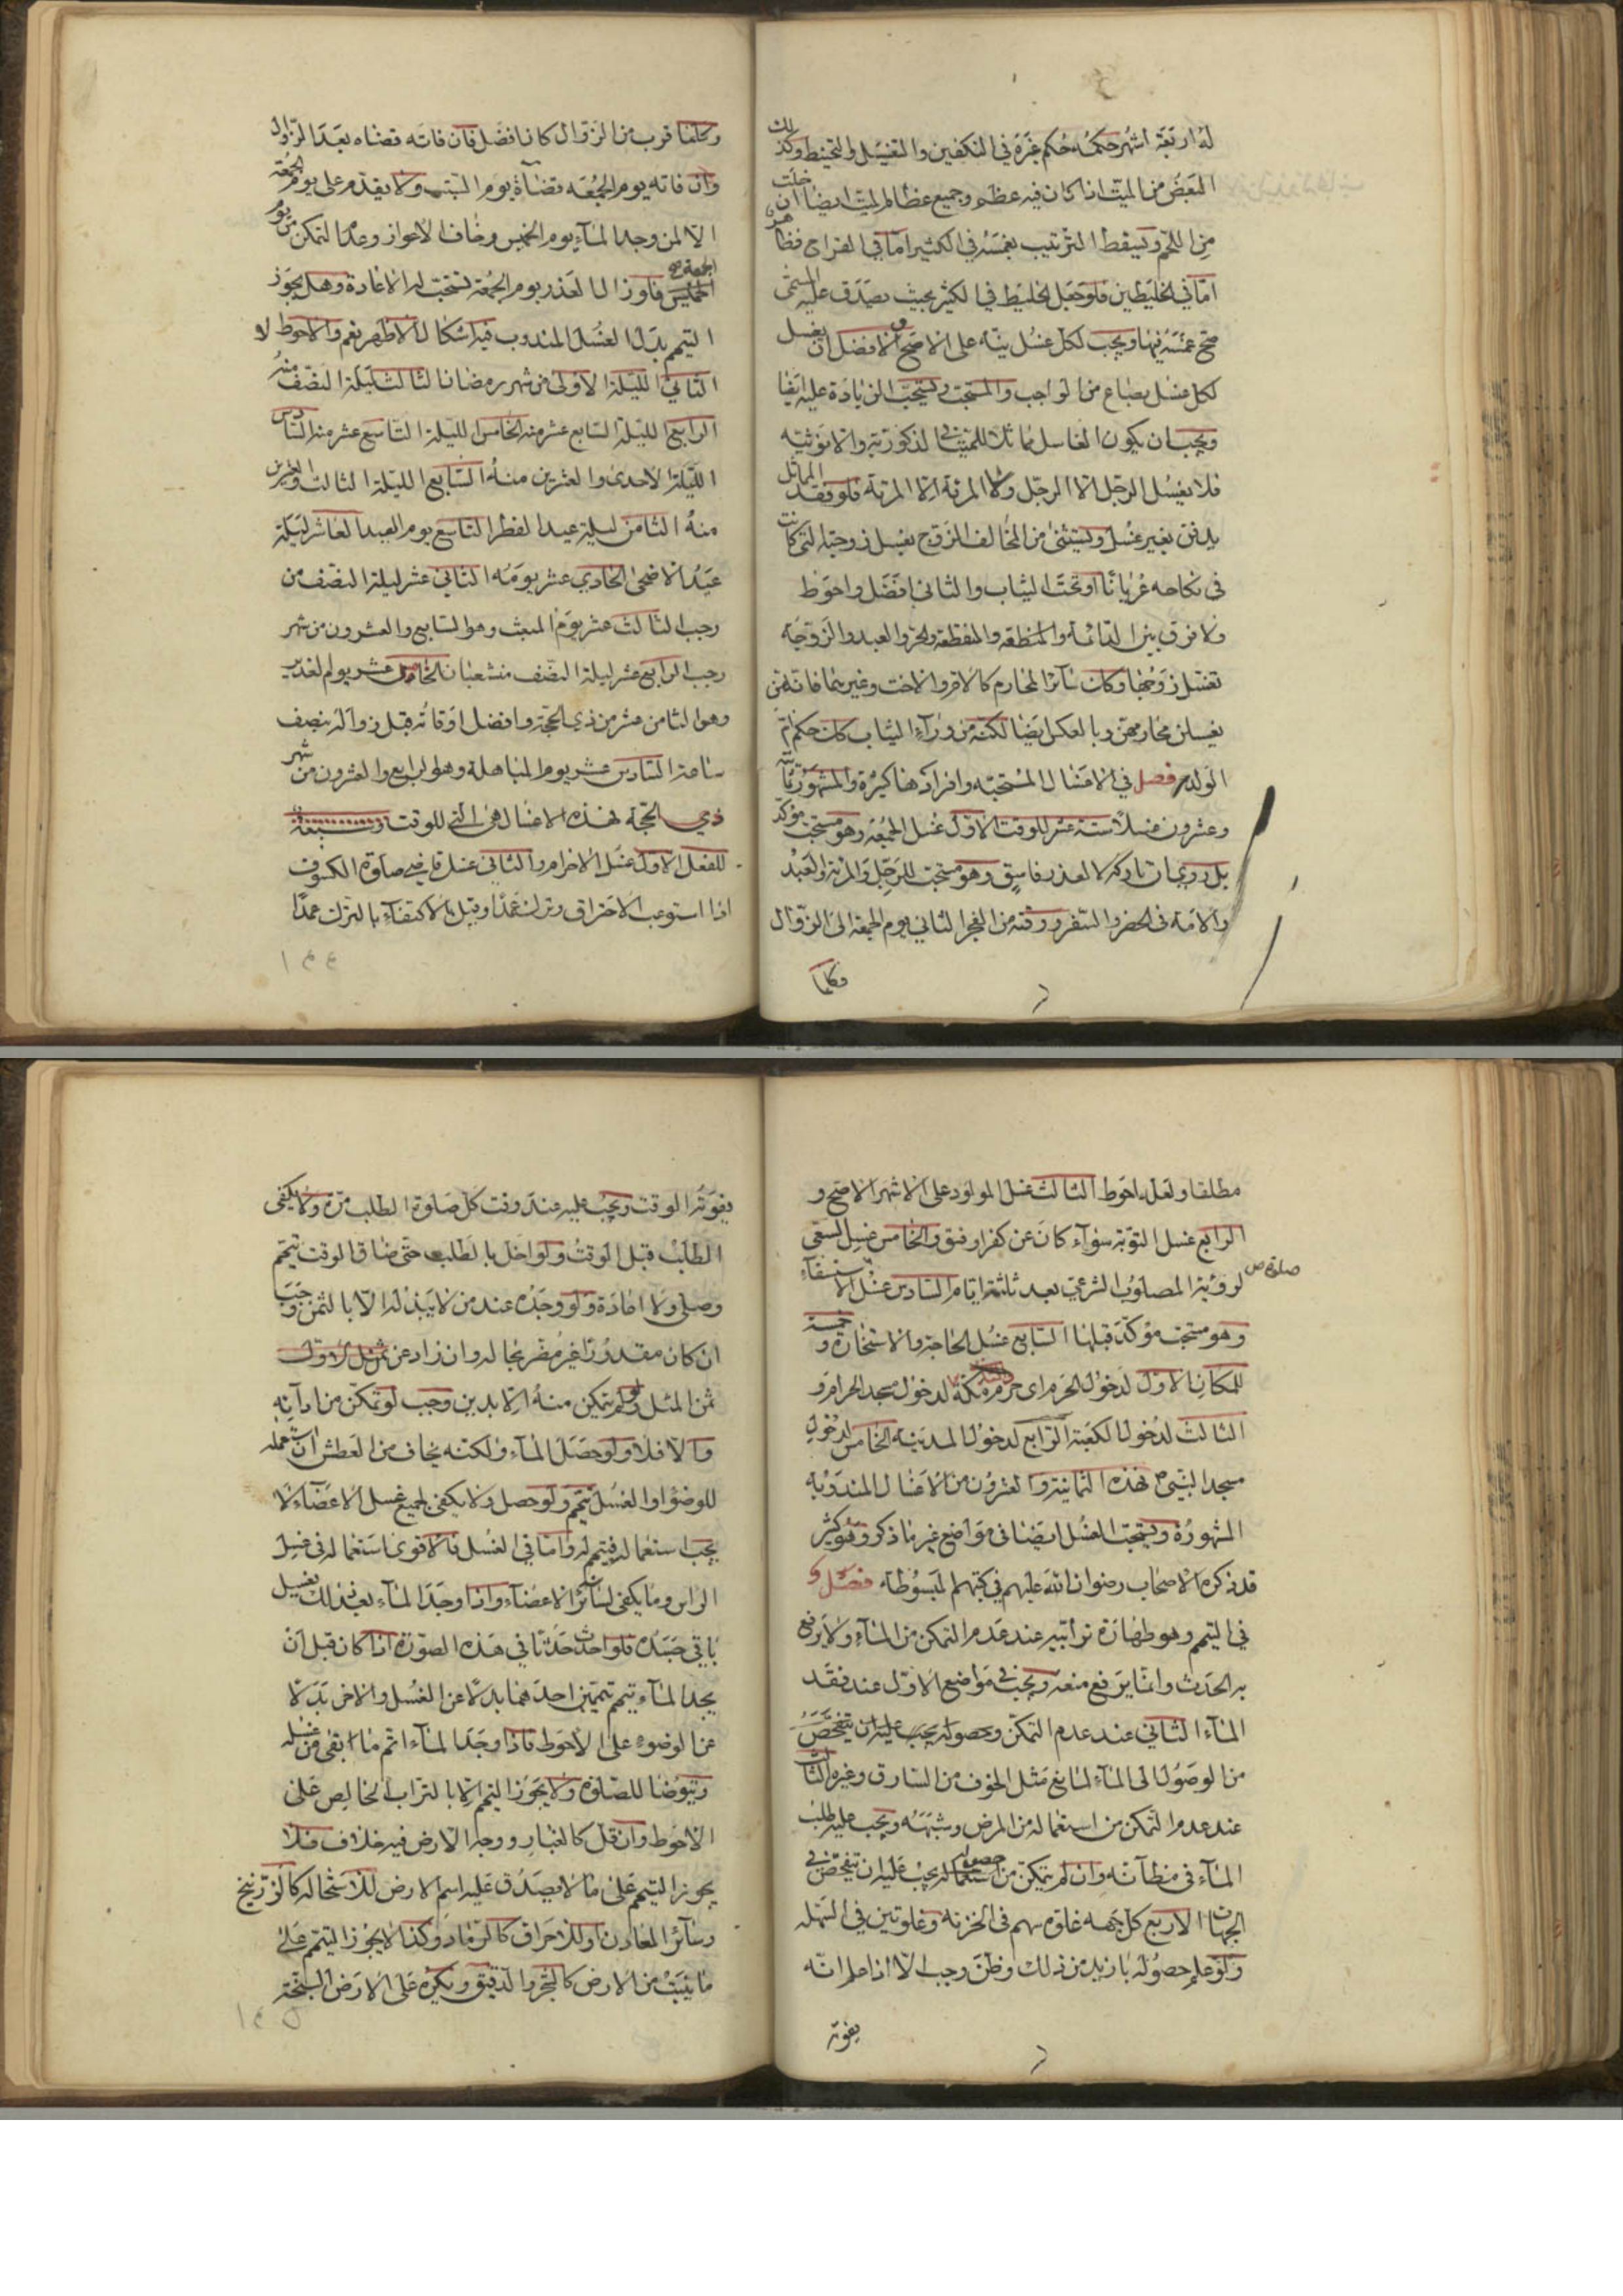 له اربعة اشهر حكمه حكم غيره في التكفين والتغسيل والتحنيط وكذلك
البعض من الميت اذا كان فيه عظم وجميع عظام الميت ايضا ان خلت
من اللحم ويسقط الترتيب بغمسه في الكثير اما في القراح فظاهر
اما في الخليطين فلو جعل الخليط في الكثير بحيث يصدق عليه المسمى
صح غمسه فيها ويجب لكل غسل نية على الاصح والافضل ان يغسل
لكل غسل بصاع من الواجب والمستحب ويستحب الزيادة عليه ايضا
ويجب ان يكون الغاسل مماثلا للميت في الذكورية والانوثية
فلا يغسل الرجل الا الرجل ولا المرئة الا المرئة فلو فقد المماثل
يدفن بغير غسل ويستثنى من المخالف الزوج يغسل زوجته التي كانت
في نكاحه عريانا او تحت الثياب والثاني افضل واحوط
ولا فرق بين الدائمة والمنقطعة والحر والعبد والزوجة
تغسل زوجها وكان سائر المحارم كالام والاخت وغيرهما فانهن
يغسلن محارمهن وبالعكس ايضا لكنه من وراء الثياب كان حكم ام
الولد فصل في الاغسال المستحبه وافرادها كثيرة والمشهور ثمانية
وعشرون غسلا ستة عشر للوقت الاول غسل الجمعة وهو مستحب مؤكد
بل روي ان تاركه لا لعذر فاسق وهو مستحب للرجل والمرئة والعبد
والامة في الحضر والسفر ووقته من الفجر الثاني يوم الجمعة الى الزوال
وكلما
وكلما قرب من الزوال كان افضل فان فاته قضاه بعد الزوال
وان فاته يوم الجمعه قضاه يوم السبت ولا يقدم على يوم الجمعة
الا لمن وجد الماء يوم الخميس وخاف الاعواز وعدم التمكن من يوم
الجمعة صح
الخميس فلو زال العذر يوم الجمعة تستحب له الاعادة وهل يجوز
التيمم بدل الغسل المندوب فيه اشكال الاظهر نعم والاحوط لا
الثاني الليلة الاولى من شهر رمضان الثالث ليلة النصف منه
الرابع الليلة السابع عشر منه الخامس الليلة التاسع عشر منه السادس
الليلة الاحدى والعشرين منه السابع الليلة الثالث والعشرين
منه الثامن ليلة عيد الفطر التاسع يوم العيد العاشر ليلة
عيد الاضحى الحادي عشر يومه الثاني عشر ليلة النصف من
رجب الثالث عشر يوم المبعث وهو السابع والعشرون من شهر
رجب الرابع عشر ليلة النصف من شعبان الخامس عشر يوم الغدير
وهو الثامن عشر من ذي الحجة وافضل اوقاته قبل زواله بنصف
ساعة السادس عشر يوم المباهلة وهو الرابع والعشرون من شهر
ذي الحجة فهذه الاغسال هي التي للوقت وسبعة
للفعل الاول غسل الاحرام والثاني غسل قاضي صلوة الكسوف
اذا استوعب الاحتراق وترك عمدا وقيل بالاكتفاء بالترك عمدا
مطلقا ولعله احوط الثالث غسل المولود على الاشهر الاصح و
الرابع غسل التوبة سواء كان عن كفر او فسق والخامس غسل السعي
لرؤية المصلوب الشرعي بعد ثلثة ايام السادس غسل صلوة الاستسقاء
وهو مستحب مؤكد قبلها السابع غسل الحاجة والاستخارة وخمسة
للمكان الاول لدخول الحرم اى حرم مكة لدخول مسجد الحرام و
الثالث لدخول الكعبة الرابع لدخول المدينة الخامس لدخول
مسجد النبي ص فهذه الثمانية والعشرون من الاغسال المندوبة
المشهورة ويستحب الغسل ايضا في مواضع غير ما ذكر وهو كثير
قد ذكره الاصحاب رضوان الله عليهم في كتبهم المبسوطه فصل
في التيمم وهو طهارة ترابية عند عدم التمكن من الماء ولا يرفع
به الحدث وانما يرفع منعه ويجب في مواضع الاول عند فقد
الماء الثاني عند عدم التمكن وحصوله يجب عليه ان يتفحص
من الوصول الى الماء لمانع مثل الخوف من السارق وغيره الثالث
عند عدم التمكن من استعماله من المرض وشبهه ويجب عليه طلب
الماء في مظانه وان لم يتمكن من حصوله يجب عليه ان يتفحص في
الجهات الاربع كل جهه غلوة سهم في الحزنة وغلوتين في السهله
ولو علم حصوله بازيد من ذلك وظن وجب الا اذا علم انه
يفوته
يفوته الوقت ويجب عليه عند وقت كل صلوة الطلب مرة ولا يكفي
الطلب قبل الوقت ولو اخل بالطلب حتى ضاق الوقت تيمم
وصلى ولا اعادة ولو وجده عند من لا يبذله الا بالثمن وجب
ان كان مقدورا غير مضر بحاله وان زاد عن ثمن مثل الاول
ثمن المثل ولو لم يتمكن منه الا بدين وجب لو تمكن من ادائه
والا فلا ولو حصل الماء ولكنه يخاف من العطش ان استعمله
للوضوء او الغسل تيمم ولو حصل ولا يكفي لجميع غسل الاعضاء لا
يجب استعماله فيتمم له واما في الغسل فالاقوى استعماله في غسل
الراس وما يكفي لسائر الاعضاء واذا وجد الماء بعد ذلك يغسل
باقي جسده فلو احدث حدثا في هذه الصورة اذا كان قبل ان
يجد الماء تيمم تيممين احدهما بدلا عن الغسل والاخر بدلا
عن الوضوء على الاحوط فاذا وجد الماء اتم ما ابقى من غسله
ويتوضا للصلوة ولا يجوز التيمم الا بالتراب الخالص على
الاحوط وان قل كالغبار ووجه الارض فيه خلاف فلا
يجوز التيمم على ما لا يصدق عليه اسم الارض للاستحاله كالزرنيخ
وسائر المعادن او للاحراق كالرماد وكذا لا يجوز التيمم على
ما ينبت من الارض كالشجر والدقيق ويكره على الارض السبخة